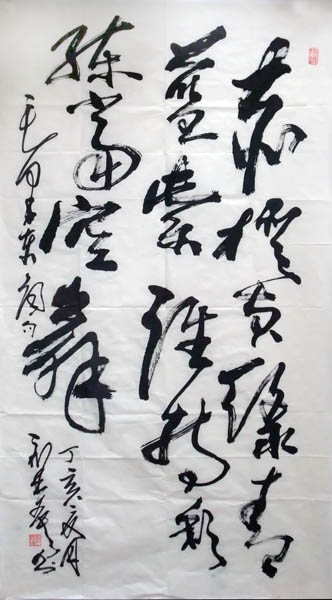 赤橙黄绿青
蓝紫谁持彩
练当空舞
毛泽东词句
丁亥夏月